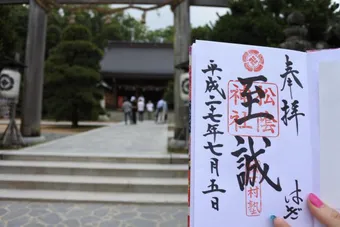 奉拝
至誠
松陰神社
村塾
平成二七年七月五日
はぎ